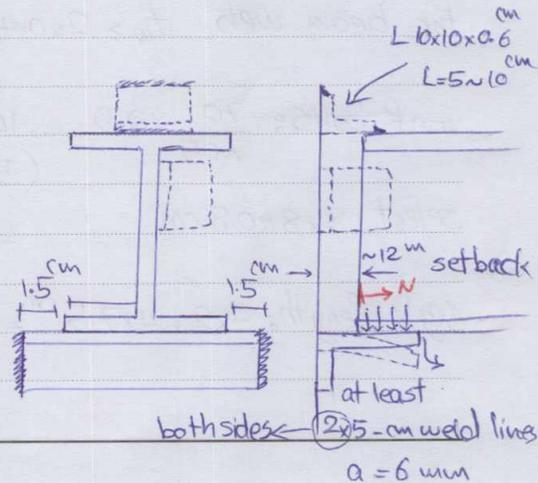 L 10x10x0.6 cm
L=5~10 cm
1.5 cm
1.5 cm
~12 m
setback
N
at least
both sides ← 2x5-cm weld lines
a = 6 mm